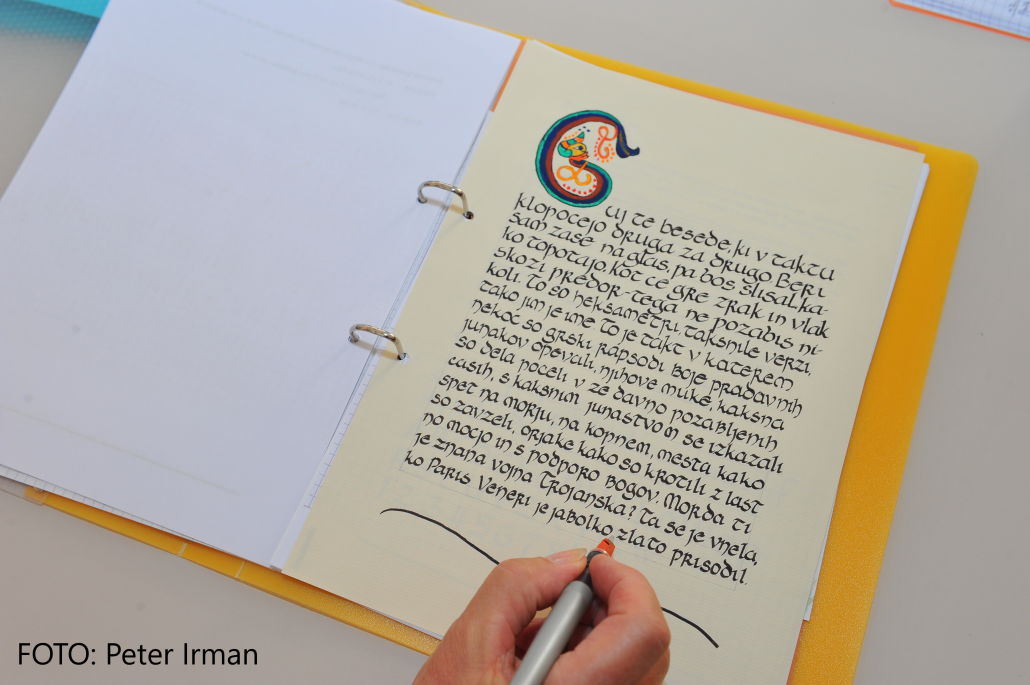 Cuj te besede, ki v taktu
klopocejo druga za drugo. Beri
sam zase na glas, pa bos slisal, ka-
ko topotajo, kot ce gre zrak in vlak
skozi predor - tega ne pozabis ni-
koli. To so heksametri, taksnile verzi,
tako jim je ime. To je takt v katerem
nekoc so grski rapsodi boje pradavnih
junakov opevali, njihove muke, kaksna
so dela poceli v ze davno pozabljenih
casih, s kaksnim junastvom se izkazali
spet na morju, na kopnem, mesta kako
so zavzeli, orjake kako so krotili z last
no mocjo in s podporo bogov. Morda ti
je znana vojna Trojanska? Ta se je vnela,
ko Paris Veneri je jabolko zlato prisodil.
FOTO: Peter Irman